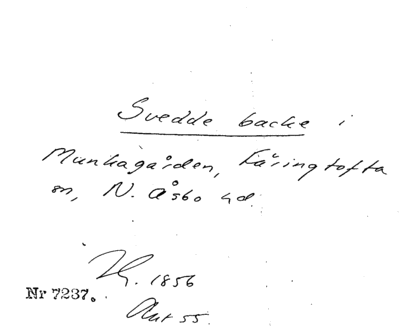 Svedde backe i
Munkagården, Färingtofta
sn, N. Åsbo hd.
1856
Nr 7237.
55.